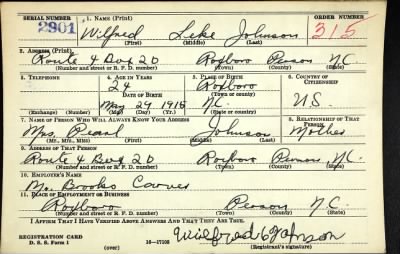 SERIAL NUMBER 1. NAME (Print) ORDER NUMBER
2901 Wilfred Leke Johnson 315
(First) (Middle) (Last)
2. ADDRESS (Print)
Route 4 Box 20 Roxboro Person N.C.
(Number and street or R. F. D. number) (Town) (County) (State)
3. TELEPHONE 4. AGE IN YEARS 5. PLACE OF BIRTH 6. COUNTRY OF CITIZENSHIP
24 Roxboro
DATE OF BIRTH (Town or county)
May 29 1915 N.C. U.S.
(Exchange) (Number) (Mo.) (Day) (Yr.) (State or country)
7. NAME OF PERSON WHO WILL ALWAYS KNOW YOUR ADDRESS 8. RELATIONSHIP OF THAT PERSON
Mrs. Pearl Johnson Mother
(Mr., Mrs., Miss) (First) (Middle) (Last)
9. ADDRESS OF THAT PERSON
Route 4 Box 20 Roxboro Person, N.C.
(Number and street or R. F. D. number) (Town) (County) (State)
10. EMPLOYER'S NAME
Mr. Brooks Carver
11. PLACE OF EMPLOYMENT OR BUSINESS
Roxboro Person N.C.
(Number and street or R. F. D. number) (Town) (County) (State)
I AFFIRM THAT I HAVE VERIFIED ABOVE ANSWERS AND THAT THEY ARE TRUE.
REGISTRATION CARD
D. S. S. Form 1 (over) 16—17105 Wilfred Johnson
(Registrant's signature)